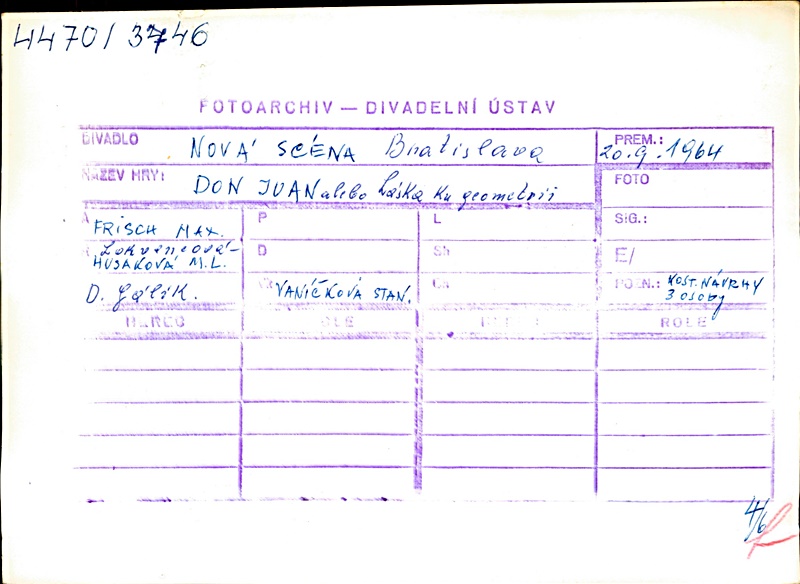 4470/3746
FOTOARCHIV — DIVADELNÍ ÚSTAV
DIVADLO NOVÁ SCÉNA Bratislava
PREM.: 20.9.1964
NÁZEV HRY: DON JUAN alebo Láska ku geometrii
FOTO
A FRISCH MAX. P L SIG.:
R Lokvencová- D Sh E/
HUSAKOVÁ M.L.
D. Gálik. VANÍČKOVÁ STAN. POZN.: KOST. NÁVRHY
3 osoby
HEREC ROLE
4/6